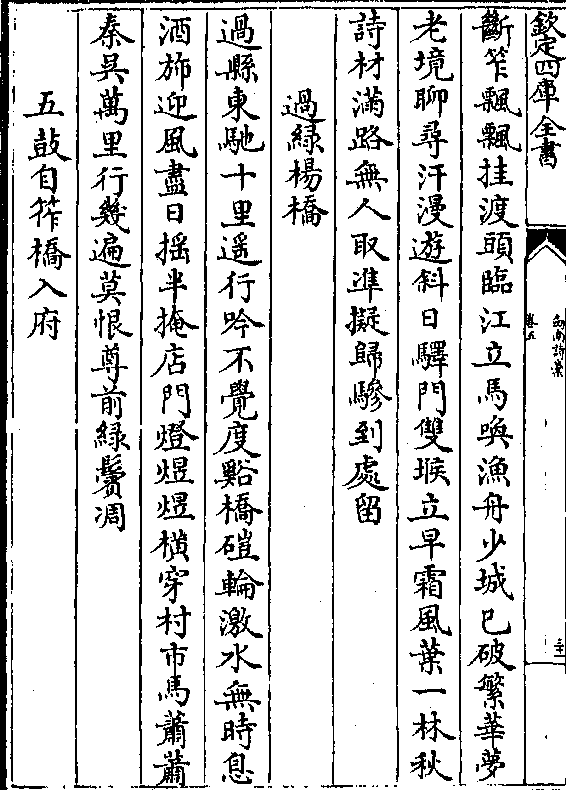 欽定四庫全書
劍南詩槀
卷五
斷笮飄飄挂渡頭臨江立馬喚漁舟少城已破繁華夢
老境聊尋汗漫遊斜日驛門雙堠立早霜風葉一林秋
詩材滿路無人取準擬歸驂到處留
過綠楊橋
過縣東馳十里遥行吟不覺度谿橋磑輪激水無時息
酒斾迎風盡日摇半掩店門燈煜煜橫穿村市馬蕭蕭
秦吳萬里行幾遍莫恨尊前緑鬢凋
五鼓自筰橋入府